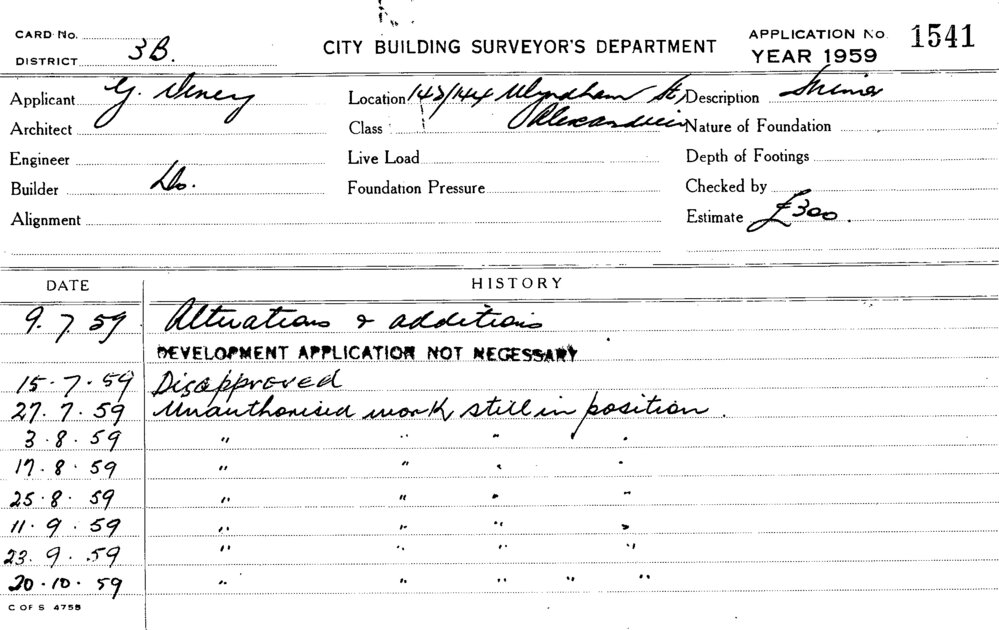 CARD No.
DISTRICT 3B.
CITY BUILDING SURVEYOR'S DEPARTMENT
APPLICATION No. 1541
YEAR 1959
Applicant G.
Location 142/144 Wyndham St,
Description
Architect
Class Alexandria
Nature of Foundation
Engineer
Live Load
Depth of Footings
Builder Do.
Foundation Pressure
Checked by
Alignment
Estimate £300.
DATE HISTORY
9.7.59 Alterations & additions
DEVELOPMENT APPLICATION NOT NECESSARY
15.7.59 Disapproved
27.7.59 Unauthorised work still in position.
3.8.59 " " " "
17.8.59 " " " "
25.8.59 " " " "
11.9.59 " " " "
23.9.59 " " " "
20.10.59 " " " " "
C OF S 4758